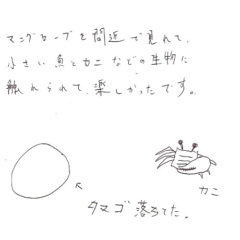 マングローブを間近で見れて、
小さい魚とカニなどの生物に
触れられて楽しかったです。
カニ
タマゴ落ちてた。